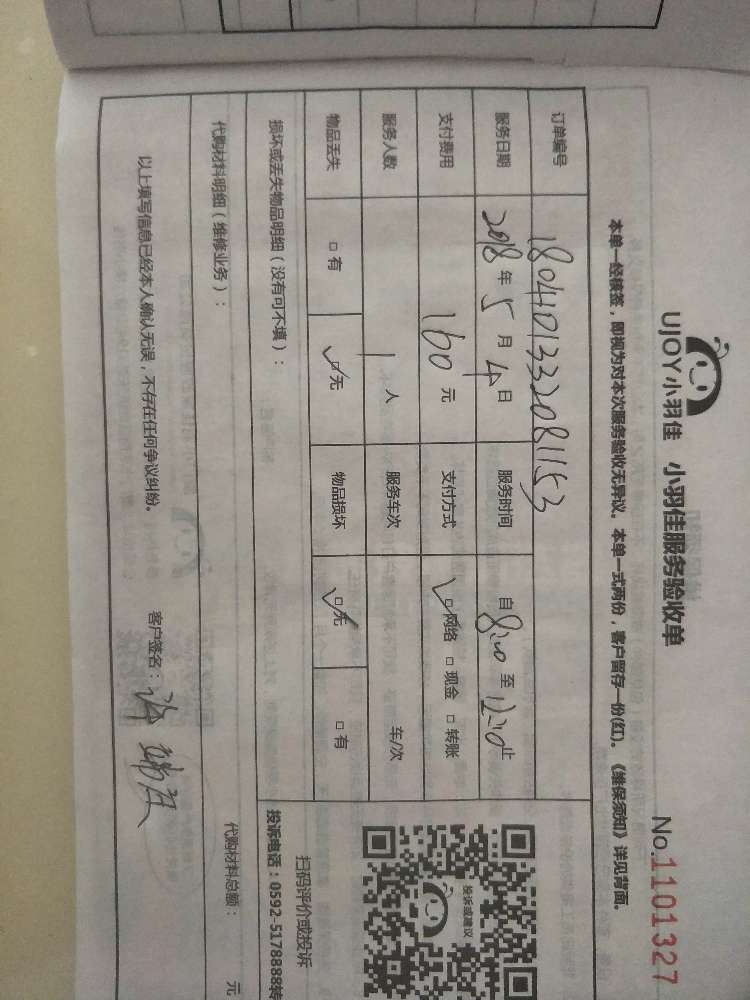 UJOY小羽佳 小羽佳服务验收单 No.1101327
本单一经核签，即视为对本次服务验收无异议。本单一式两份，客户留存一份(红)。《维保须知》详见背面。
订单编号 180401332081153
服务日期 2018年5月4日 服务时间 自8:00至12:00止
支付费用 160元 支付方式 ☑网络 □现金 □转账
服务人数 1人 服务车次 车/次
物品丢失 □有 ☑无 物品损坏 ☑无 □有
投诉或建议
扫码评价或投诉
损坏或丢失物品明细（没有可不填）： 投诉电话：0592-5178888转
代购材料明细（维修业务）： 代购材料总额： 元
以上填写信息已经本人确认无误，不存在任何争议纠纷。 客户签名：